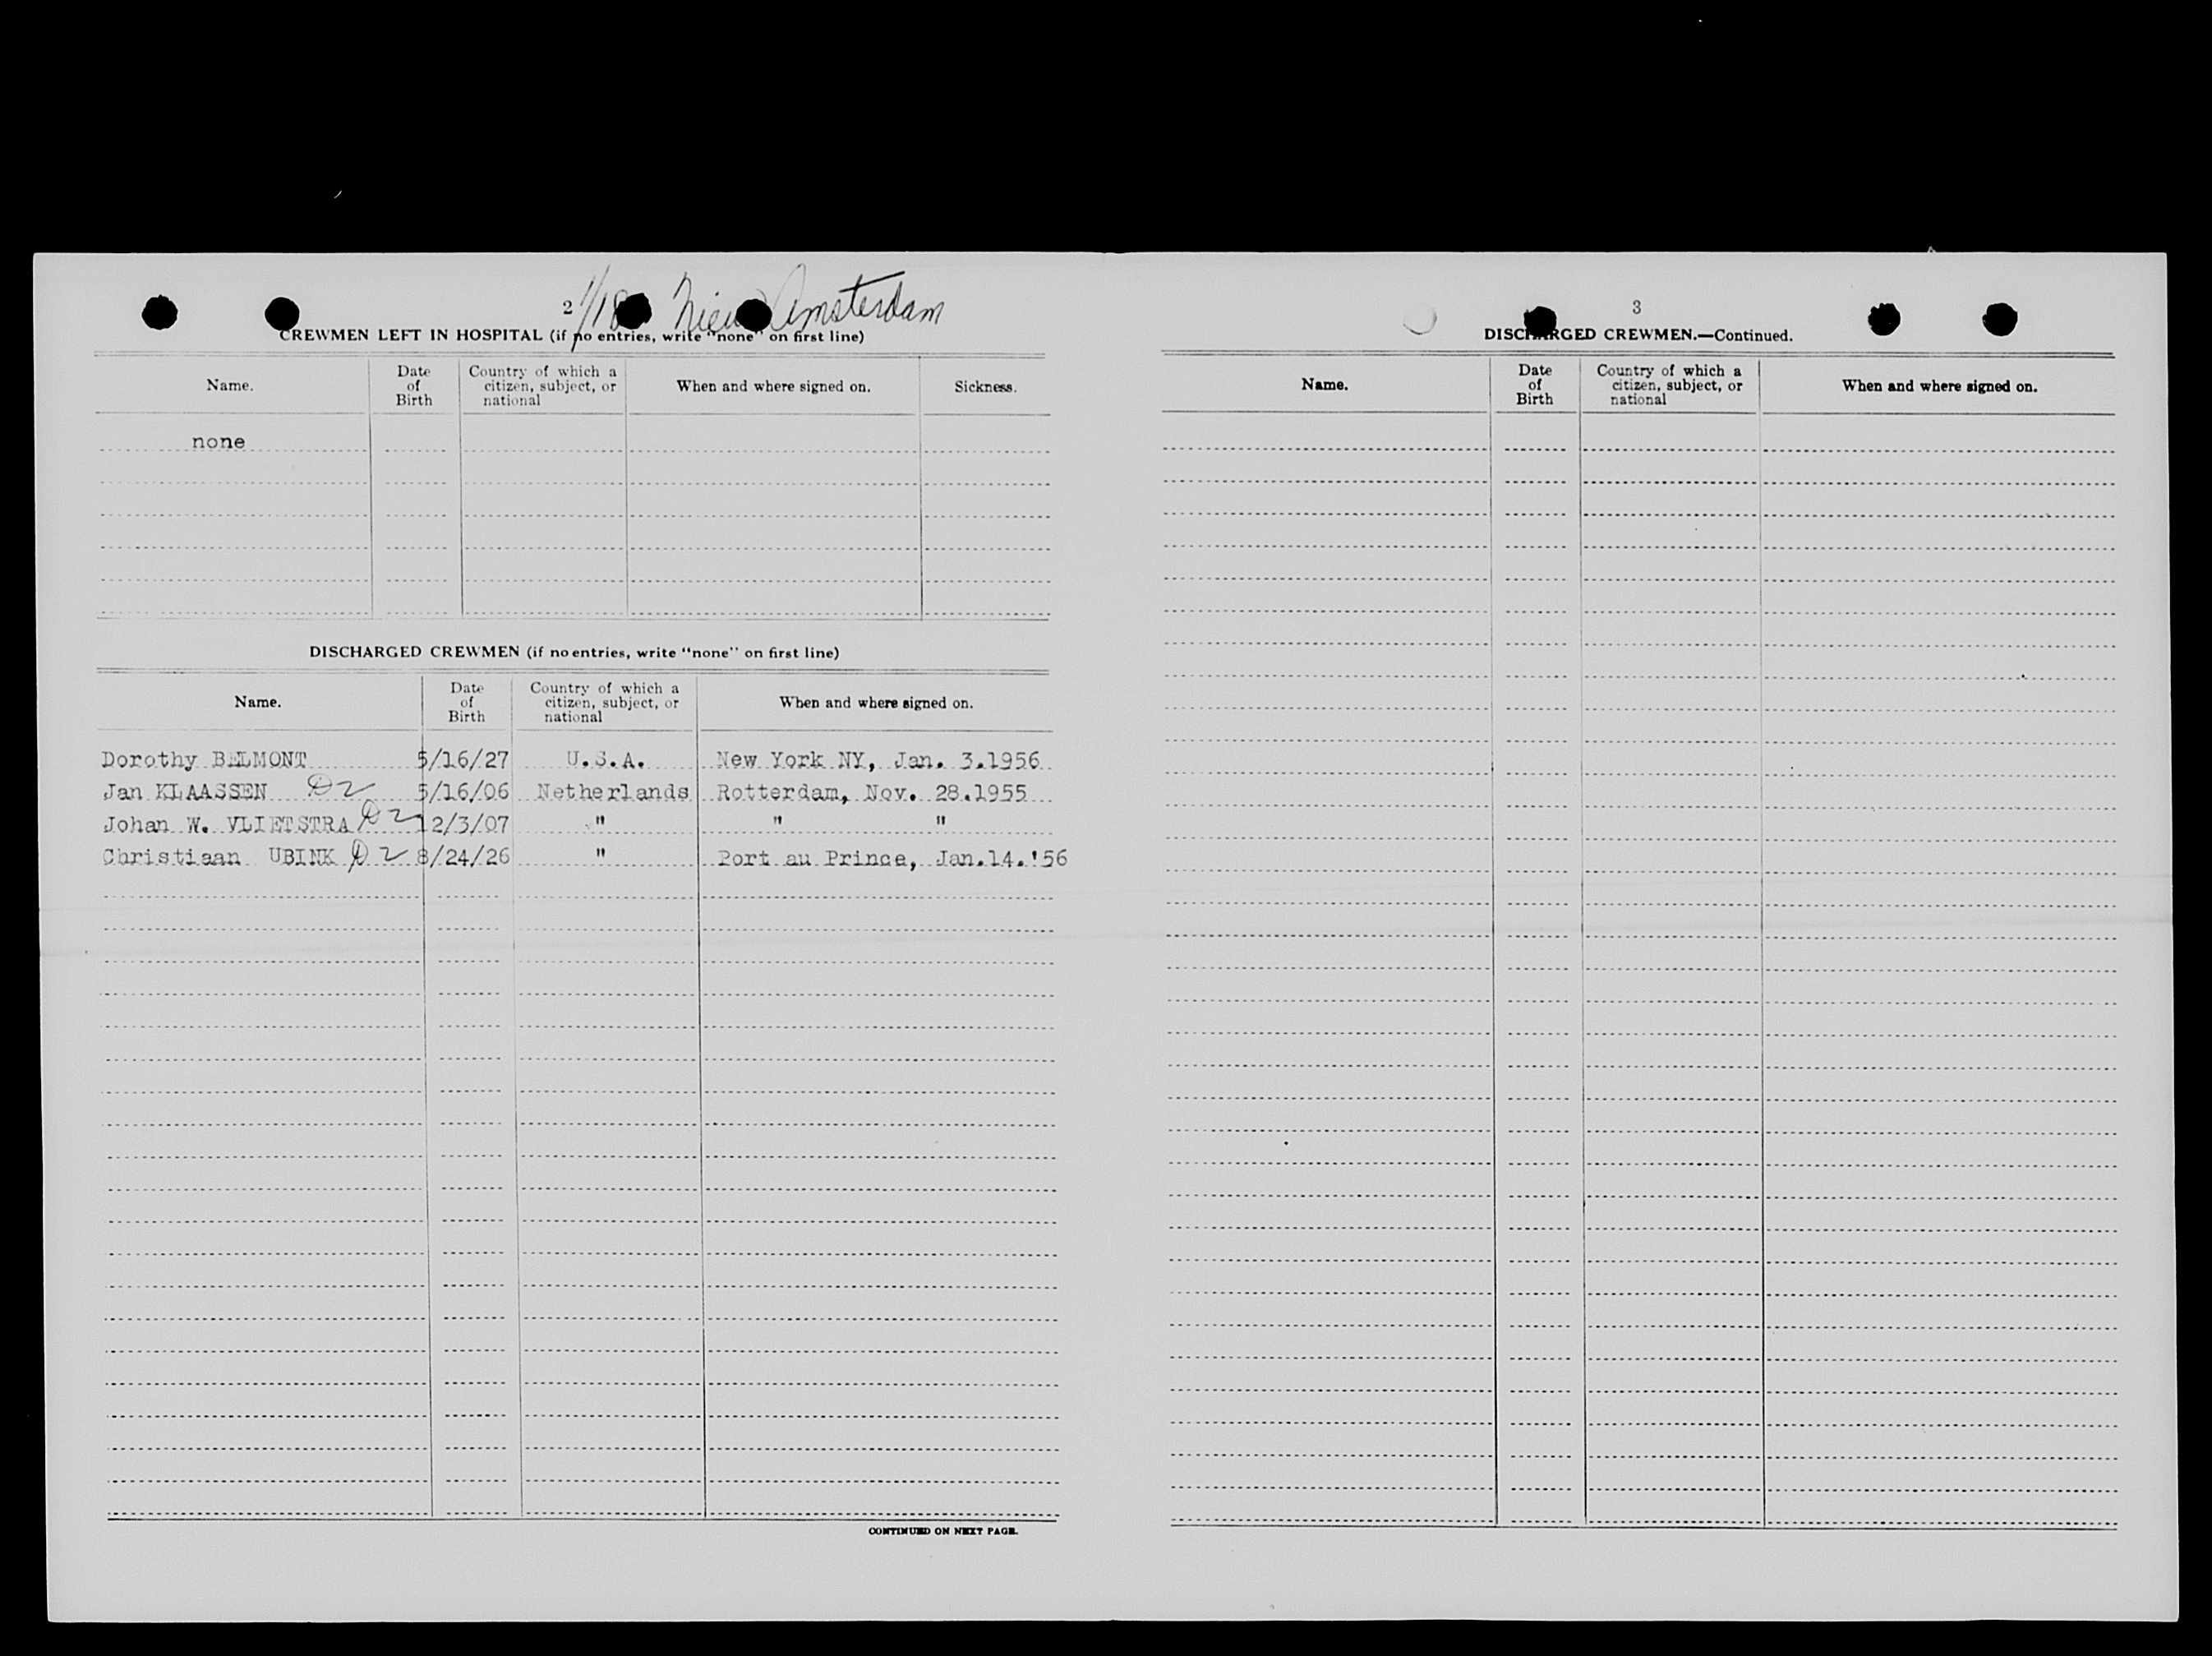 2 1/18 Nieuw Amsterdam
CREWMEN LEFT IN HOSPITAL (if no entries, write "none" on first line)
Name. Date of Birth Country of which a citizen, subject, or national When and where signed on. Sickness.
none
DISCHARGED CREWMEN (if no entries, write "none" on first line)
Name. Date of Birth Country of which a citizen, subject, or national When and where signed on.
Dorothy BELMONT 5/16/27 U.S.A. New York NY, Jan. 3.1956
Jan KLAASSEN D2 5/16/06 Netherlands Rotterdam, Nov. 28.1955
Johan W. VLIETSTRA D2 12/3/07 " " "
Christiaan UBINK D2 8/24/26 " Port au Prince, Jan.14.'56
CONTINUED ON NEXT PAGE.
3
DISCHARGED CREWMEN.—Continued.
Name. Date of Birth Country of which a citizen, subject, or national When and where signed on.